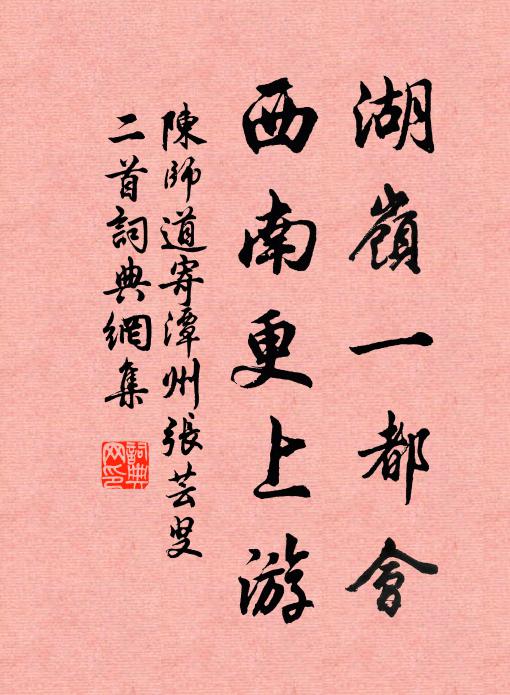 湖嶺一都會
西南更上游
陳師道寄潭州張芸叟
二首詞典網集
詞典网印